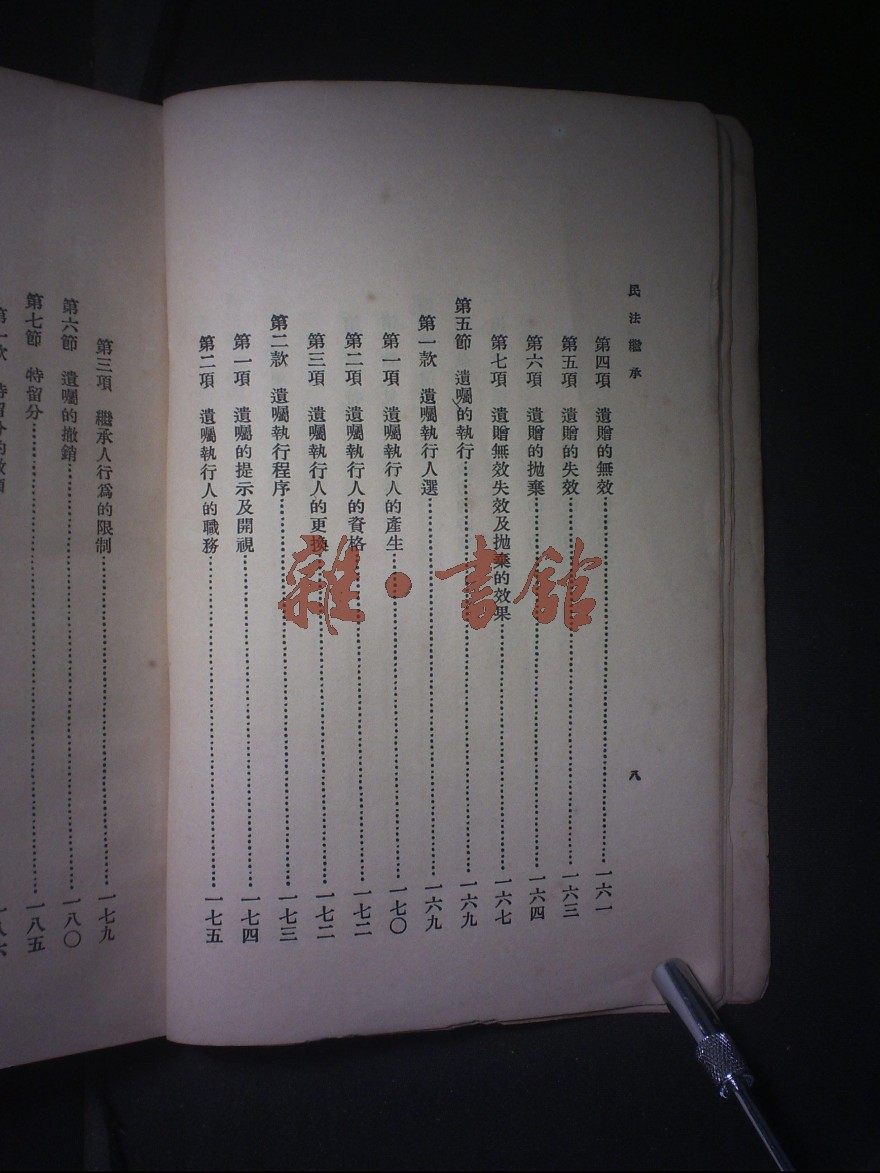 民法繼承
八
第四項 遺贈的無效⋯⋯一六一
第五項 遺贈的失效⋯⋯一六三
第六項 遺贈的拋棄⋯⋯一六四
第七項 遺贈無效失效及拋棄的效果⋯⋯一六七
第五節 遺囑的執行⋯⋯一六九
第一款 遺囑執行人選⋯⋯一六九
第一項 遺囑執行人的產生⋯⋯一七〇
第二項 遺囑執行人的資格⋯⋯一七二
第三項 遺囑執行人的更換⋯⋯一七二
第二款 遺囑執行程序⋯⋯一七三
第一項 遺囑的提示及開視⋯⋯一七四
第二項 遺囑執行人的職務⋯⋯一七五
第三項 繼承人行為的限制⋯⋯一七九
第六節 遺囑的撤銷⋯⋯一八〇
第七節 特留分⋯⋯一八五
雜·書館